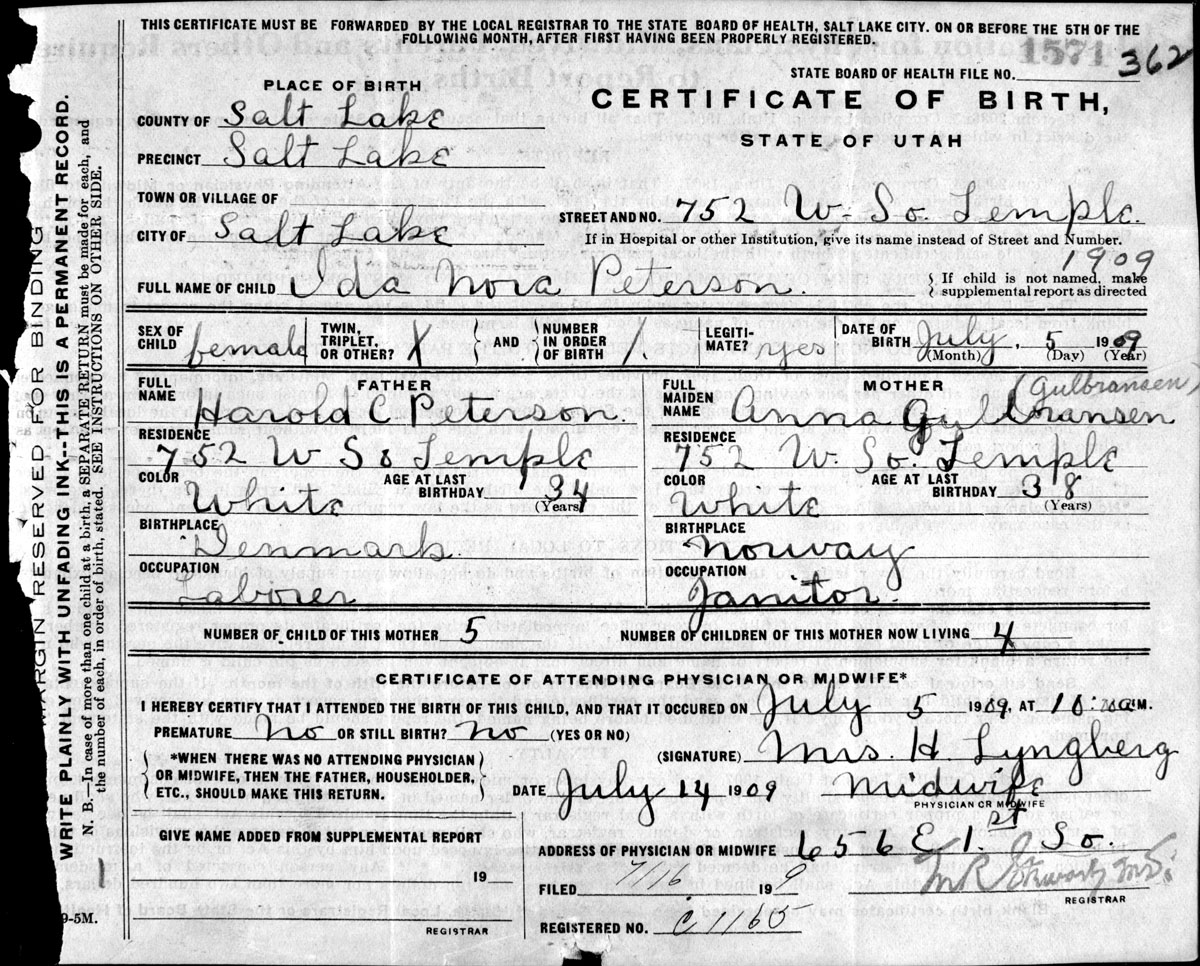 THIS CERTIFICATE MUST BE FORWARDED BY THE LOCAL REGISTRAR TO THE STATE BOARD OF HEALTH, SALT LAKE CITY. ON OR BEFORE THE 5TH OF THE
FOLLOWING MONTH, AFTER FIRST HAVING BEEN PROPERLY REGISTERED.
1571 362
STATE BOARD OF HEALTH FILE NO.
PLACE OF BIRTH
CERTIFICATE OF BIRTH,
STATE OF UTAH
COUNTY OF Salt Lake
PRECINCT Salt Lake
TOWN OR VILLAGE OF
STREET AND NO. 752 W. So. Temple.
CITY OF Salt Lake
If in Hospital or other Institution, give its name instead of Street and Number.
1909
FULL NAME OF CHILD Ida Nora Peterson. { If child is not named, make
supplemental report as directed
SEX OF CHILD female TWIN, TRIPLET, OR OTHER? X AND NUMBER IN ORDER OF BIRTH LEGITIMATE? yes DATE OF BIRTH July, 5 1909
(Month) (Day) (Year)
FATHER
FULL NAME Harold C Peterson.
RESIDENCE
752 W So Temple
COLOR White AGE AT LAST BIRTHDAY 34
(Years)
BIRTHPLACE
Denmark.
OCCUPATION
Laborer
MOTHER (Gulbransen)
FULL MAIDEN NAME Anna Gulbransen
RESIDENCE
752 W. So. Temple
COLOR White AGE AT LAST BIRTHDAY 38
(Years)
BIRTHPLACE
Norway
OCCUPATION
Janitor.
NUMBER OF CHILD OF THIS MOTHER 5 NUMBER OF CHILDREN OF THIS MOTHER NOW LIVING 4
CERTIFICATE OF ATTENDING PHYSICIAN OR MIDWIFE*
I HEREBY CERTIFY THAT I ATTENDED THE BIRTH OF THIS CHILD, AND THAT IT OCCURED ON July 5 1909, AT 10 M.
PREMATURE No OR STILL BIRTH? No (YES OR NO)
(SIGNATURE) Mrs. H. Lyngberg
*WHEN THERE WAS NO ATTENDING PHYSICIAN
OR MIDWIFE, THEN THE FATHER, HOUSEHOLDER,
ETC., SHOULD MAKE THIS RETURN.
DATE July 14 1909 Midwife
PHYSICIAN OR MIDWIFE
GIVE NAME ADDED FROM SUPPLEMENTAL REPORT
19
REGISTRAR
ADDRESS OF PHYSICIAN OR MIDWIFE 656 E 1st So.
FILED 7/16 199
REGISTRAR
REGISTERED NO. C 1165
MARGIN RESERVED FOR BINDING
WRITE PLAINLY WITH UNFADING INK--THIS IS A PERMANENT RECORD.
N. B.—In case of more than one child at a birth, a SEPARATE RETURN must be made for each, and
the number of each, in order of birth, stated. SEE INSTRUCTIONS ON OTHER SIDE.
9-5M.